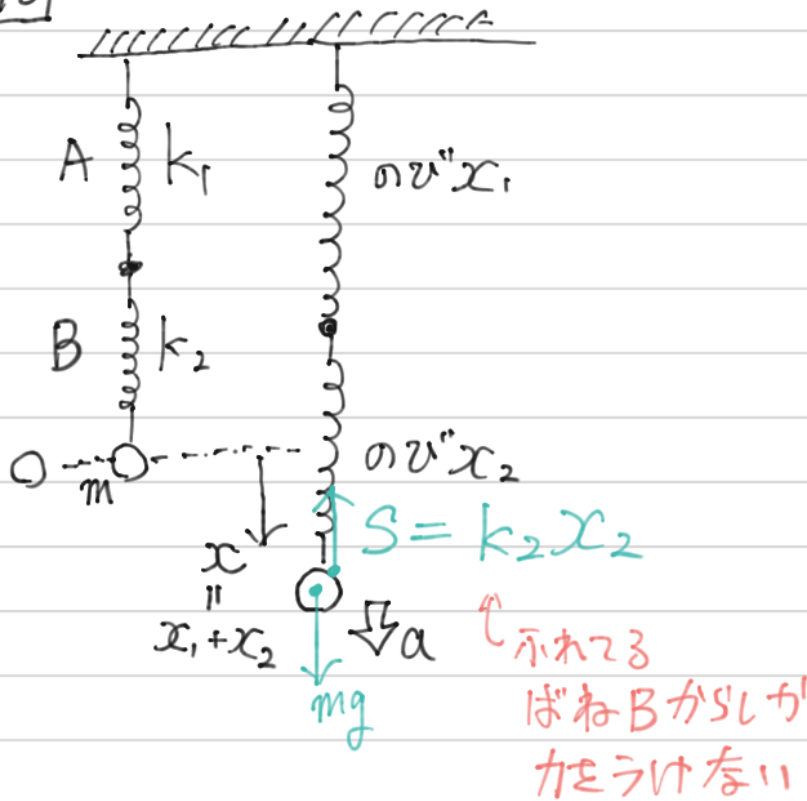 A k₁
のび x₁
B k₂
O
m
のび x₂
x
=
x₁+x₂
S = k₂x₂
a
mg
ふれてる
ばねBからしか
力をうけない